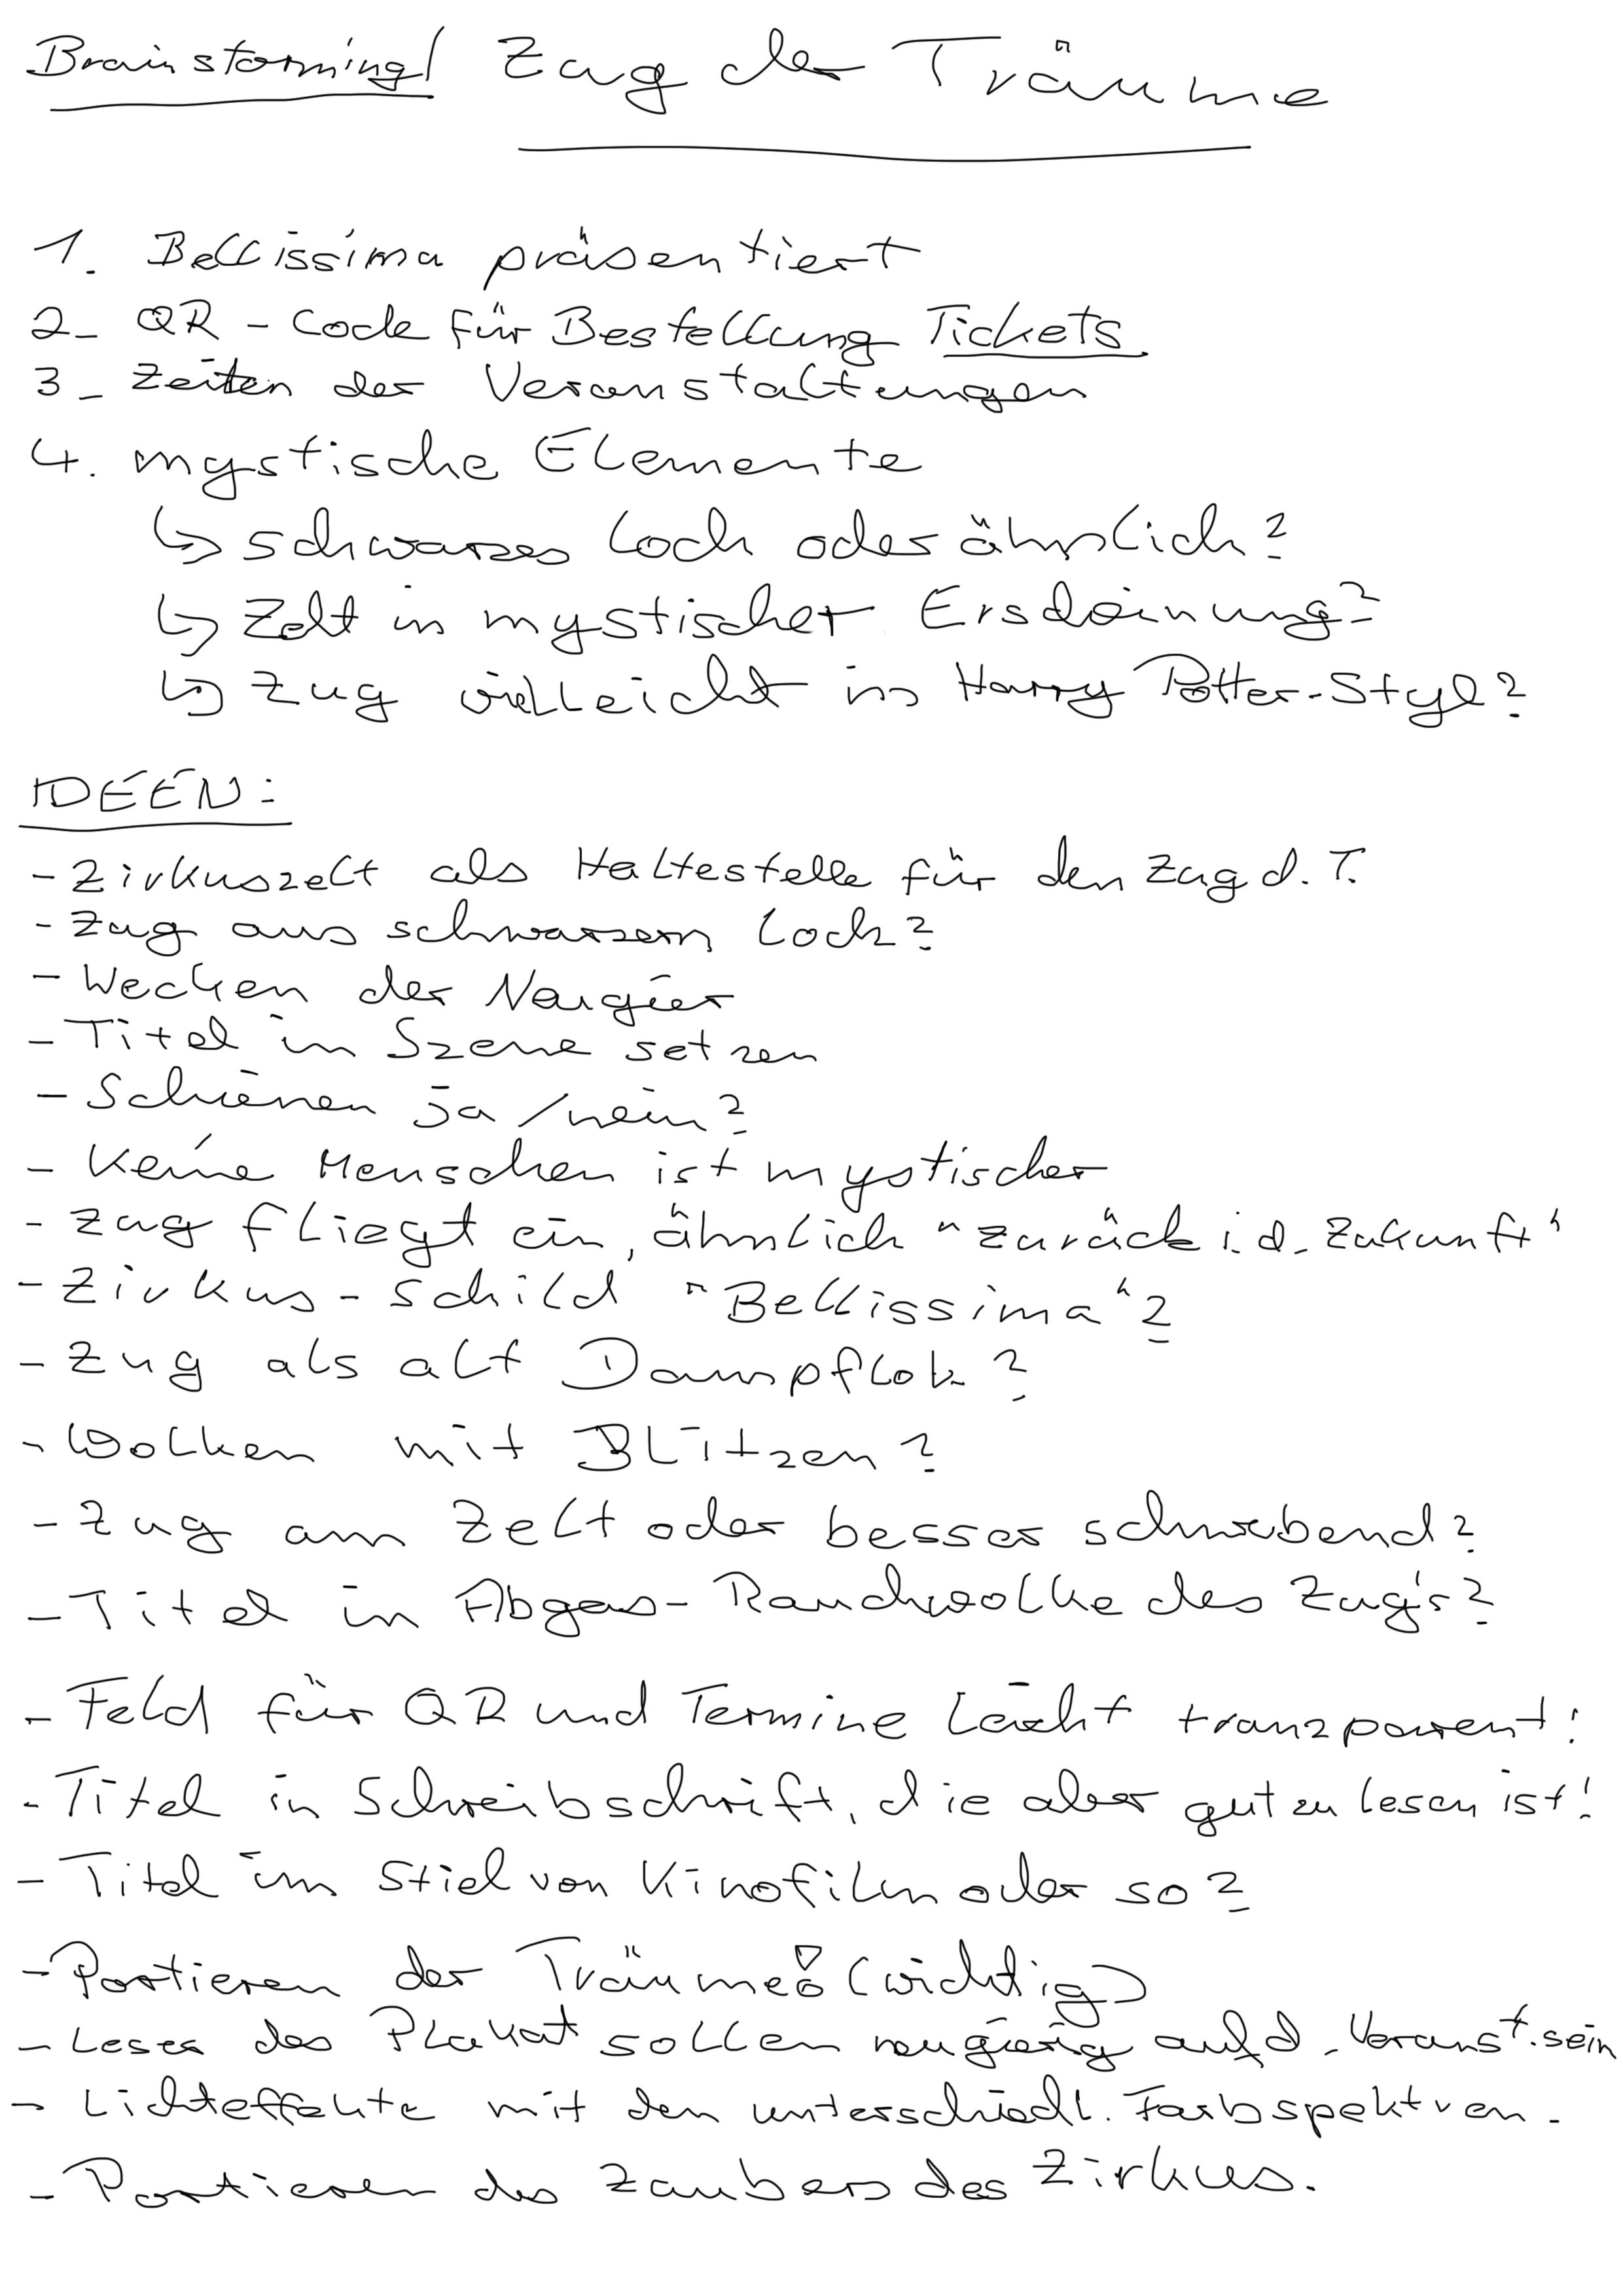 Brainstorming/ Zug der Träume
1. Bellissima präsentiert
2_ QR-Code für Bestellung Tickets
3_ Zeiten der Veranstaltungen
4. mystische Elemente
↳ schwarzes Loch oder ähnlich?
↳ Zelt in mystischer Erscheinung?
↳ Zug vielleicht in Harry Potter-Styl?
IDEEN:
- Zirkuszelt als Haltestelle für den Zug d. T.
- Zug aus schwarzem Loch?
- Wecken der Neugier
- Titel in Szene setzen
- Schienen ja/nein?
- Keine Menschen ist mystischer
- Zug fliegt ein, ähnlich "zurück i. d. Zukunft"
- Zirkus-Schild "Bellissima"?
- Zug als alt Dampflok?
- Wolken mit Blitzen?
- Zug am Zelt oder besser schwebend?
- Titel in Abgas-Rauchwolke des Zug's?
- Feld für QR und Termine leicht tranzparent!
- Titel in Schreibschrift, die aber gut zu lesen ist!
- Titel im Stiel von Kinofilm oder so?
- Portieren der Träume! (wichtig)
- Leser des Plakat sollen neugierig auf d. Veranst. sein
- Lichteffekte mit den unterschiedl. Farbspektren.
- Portieren des Zaubers des Zirkus.